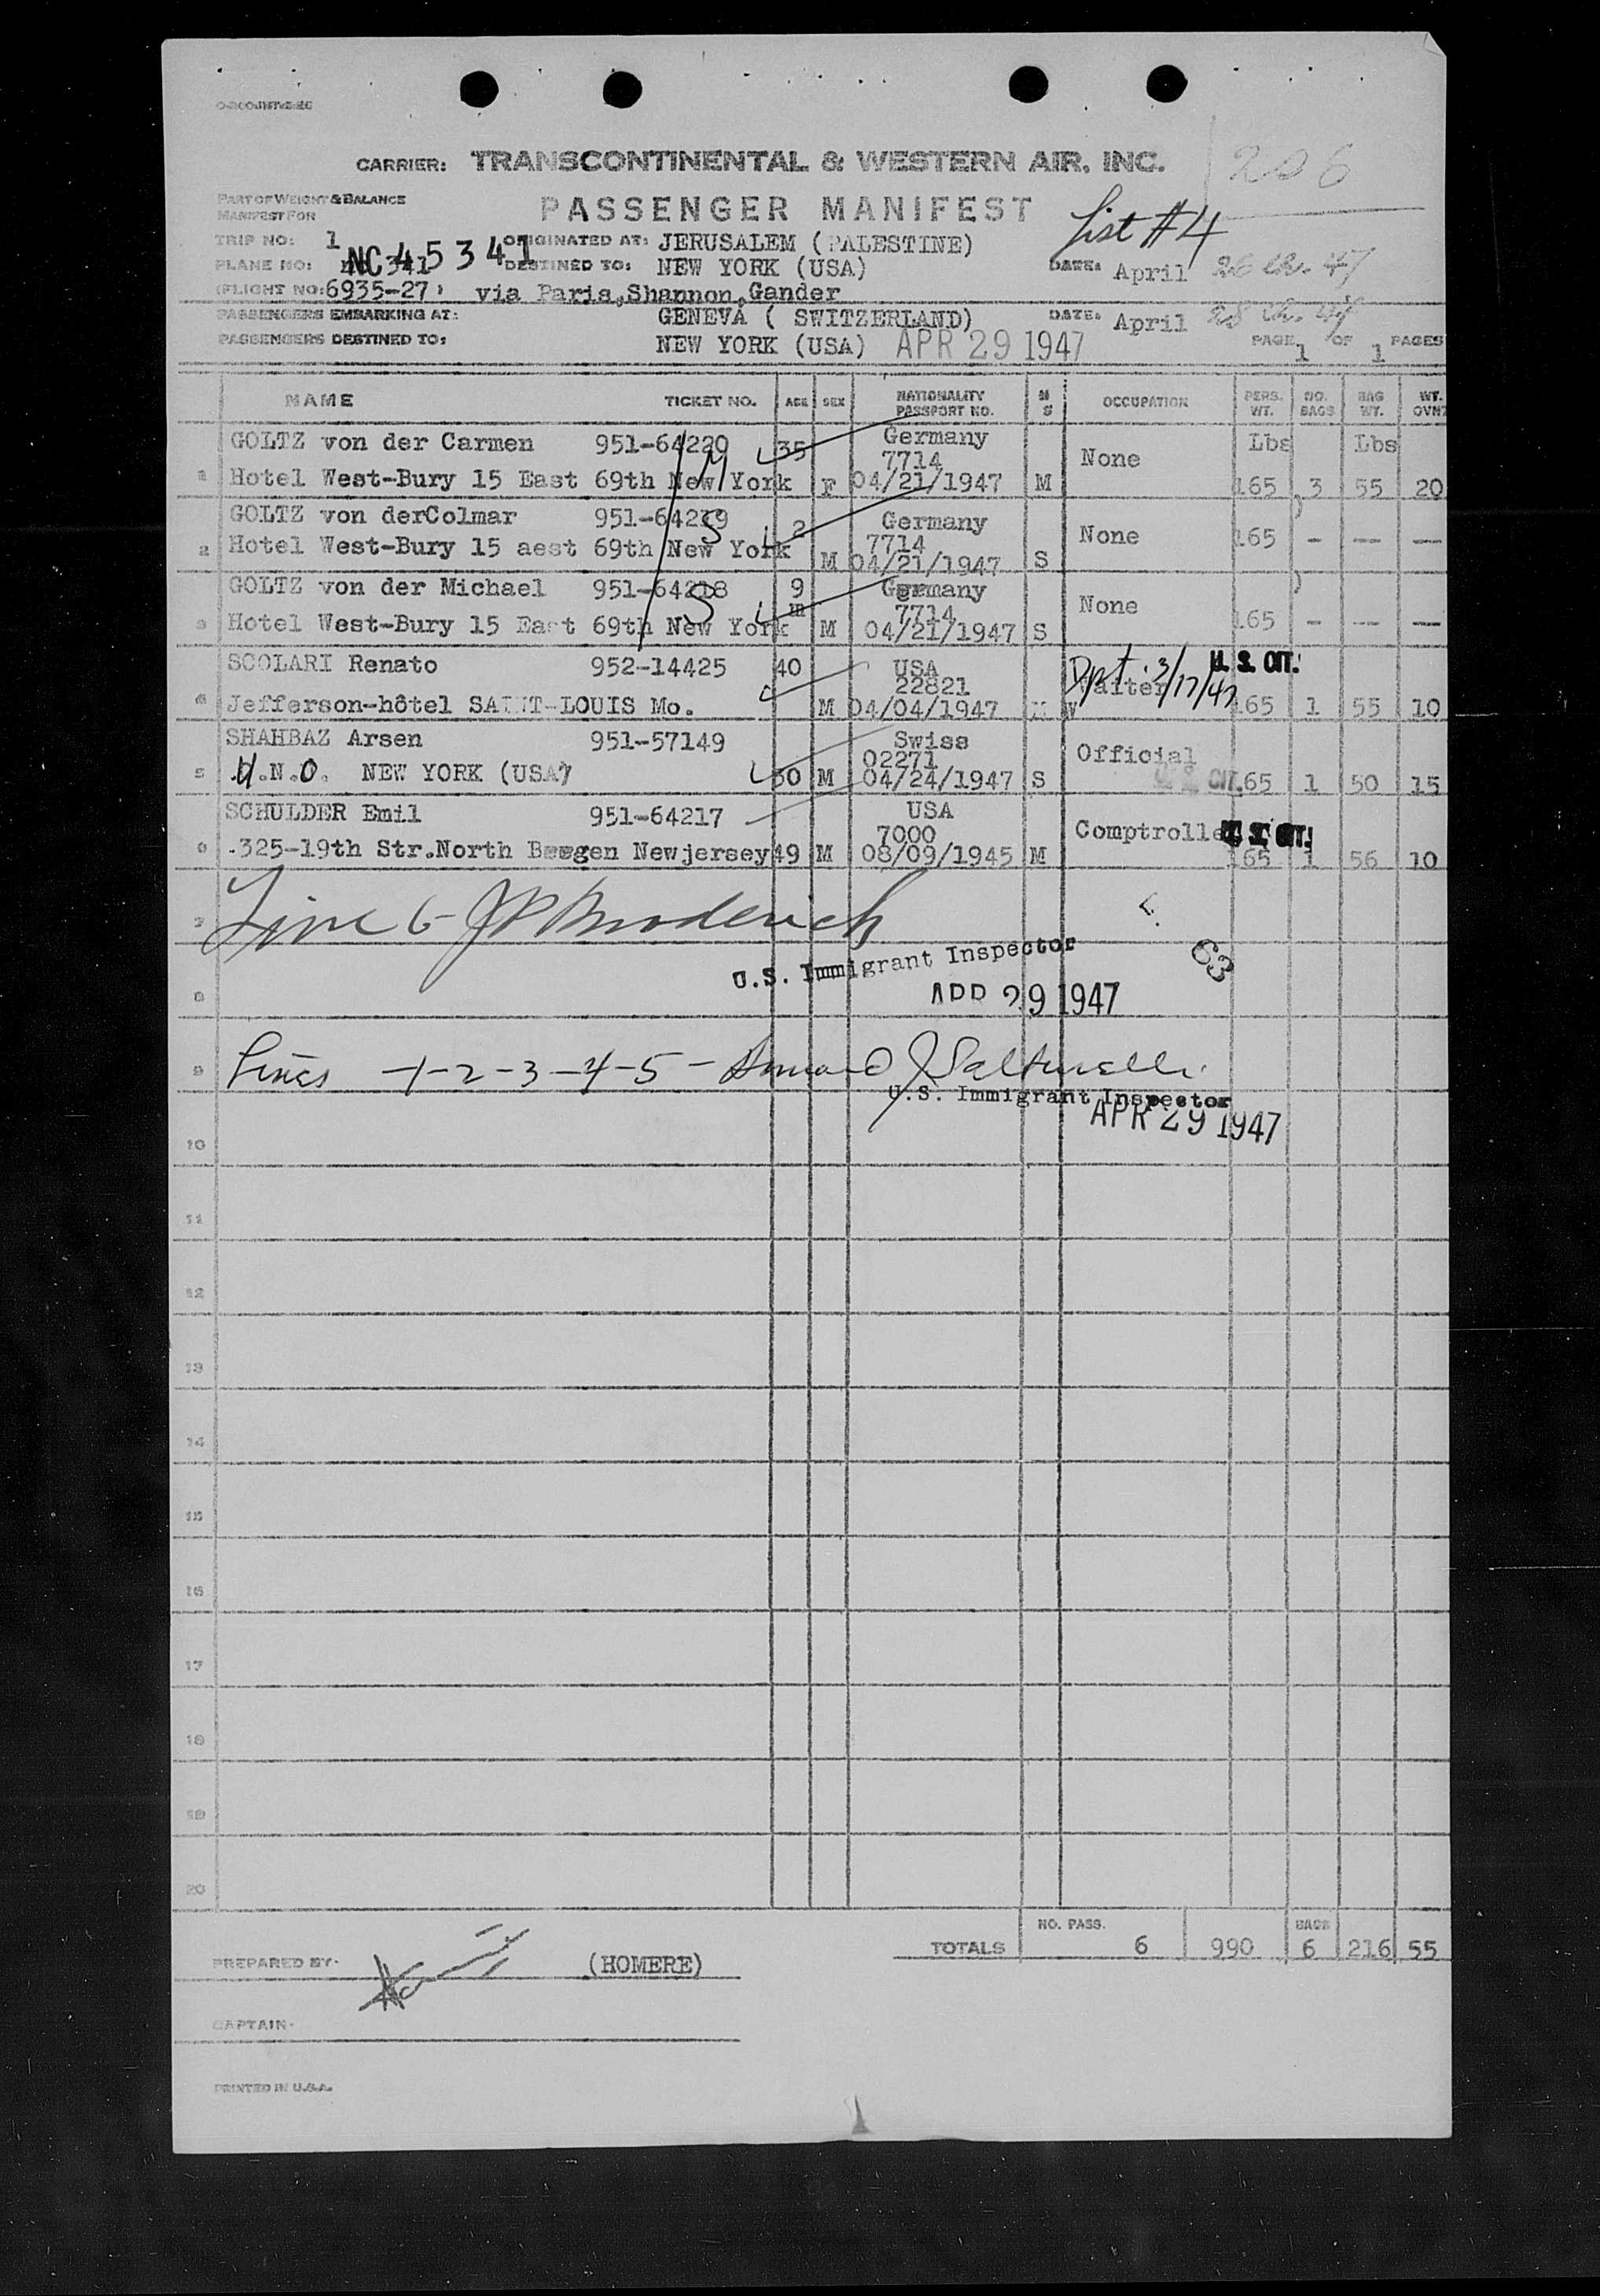 CARRIER: TRANSCONTINENTAL & WESTERN AIR, INC.
206
PART OF WEIGHT & BALANCE
MANIFEST FOR
PASSENGER MANIFEST
List #4
TRIP NO: 1 ORIGINATED AT: JERUSALEM (PALESTINE)
PLANE NO: NC 45341 DESTINED TO: NEW YORK (USA) DATE: April 26 47
(FLIGHT NO: 6935-27) via Paris,Shannon,Gander
PASSENGERS EMBARKING AT: GENEVA ( SWITZERLAND) DATE: April 28
PASSENGERS DESTINED TO: NEW YORK (USA) APR 29 1947 PAGE 1 OF 1 PAGES
NAME TICKET NO. AGE SEX NATIONALITY PASSPORT NO. M S OCCUPATION PERS. WT. NO. BAGS BAG WT. WT. OVNT
GOLTZ von der Carmen 951-64220 35 Germany Lbs Lbs
7714 None
Hotel West-Bury 15 East 69th New York F 04/21/1947 M 165 3 55 20
GOLTZ von derColmar 951-64219 2 Germany None 165 - -- --
2 Hotel West-Bury 15 aest 69th New York M 7714 04/21/1947 S
GOLTZ von der Michael 951-64218 9 m Germany None
3 Hotel West-Bury 15 East 69th New York M 7714 04/21/1947 S 165 - -- --
SCOLARI Renato 952-14425 40 USA Dpt. 3/17/47 U. S. CIT.
22821 Waiter
Jefferson-hôtel SAINT-LOUIS Mo. M 04/04/1947 M W 165 1 55 10
SHAHBAZ Arsen 951-57149 Swiss
02271 Official
5 U.N.O. NEW YORK (USA) 30 M 04/24/1947 S U. S. CIT. 165 1 50 15
SCHULDER Emil 951-64217 USA
7000 Comptroller U. S. CIT.
.325-19th Str.North Beegen Newjersey 49 M 08/09/1945 M 165 1 56 10
7 Line 6- JP Broderick
U.S. Immigrant Inspector
63
8 APR 29 1947
9 Lines -1-2-3-4-5-
U.S. Immigrant Inspector
APR 29 1947
10
11
12
13
14
15
16
17
18
19
20
NO. PASS. BAGS
TOTALS 6 990 6 216 55
PREPARED BY. (HOMERE)
CAPTAIN.
PRINTED IN U.S.A.